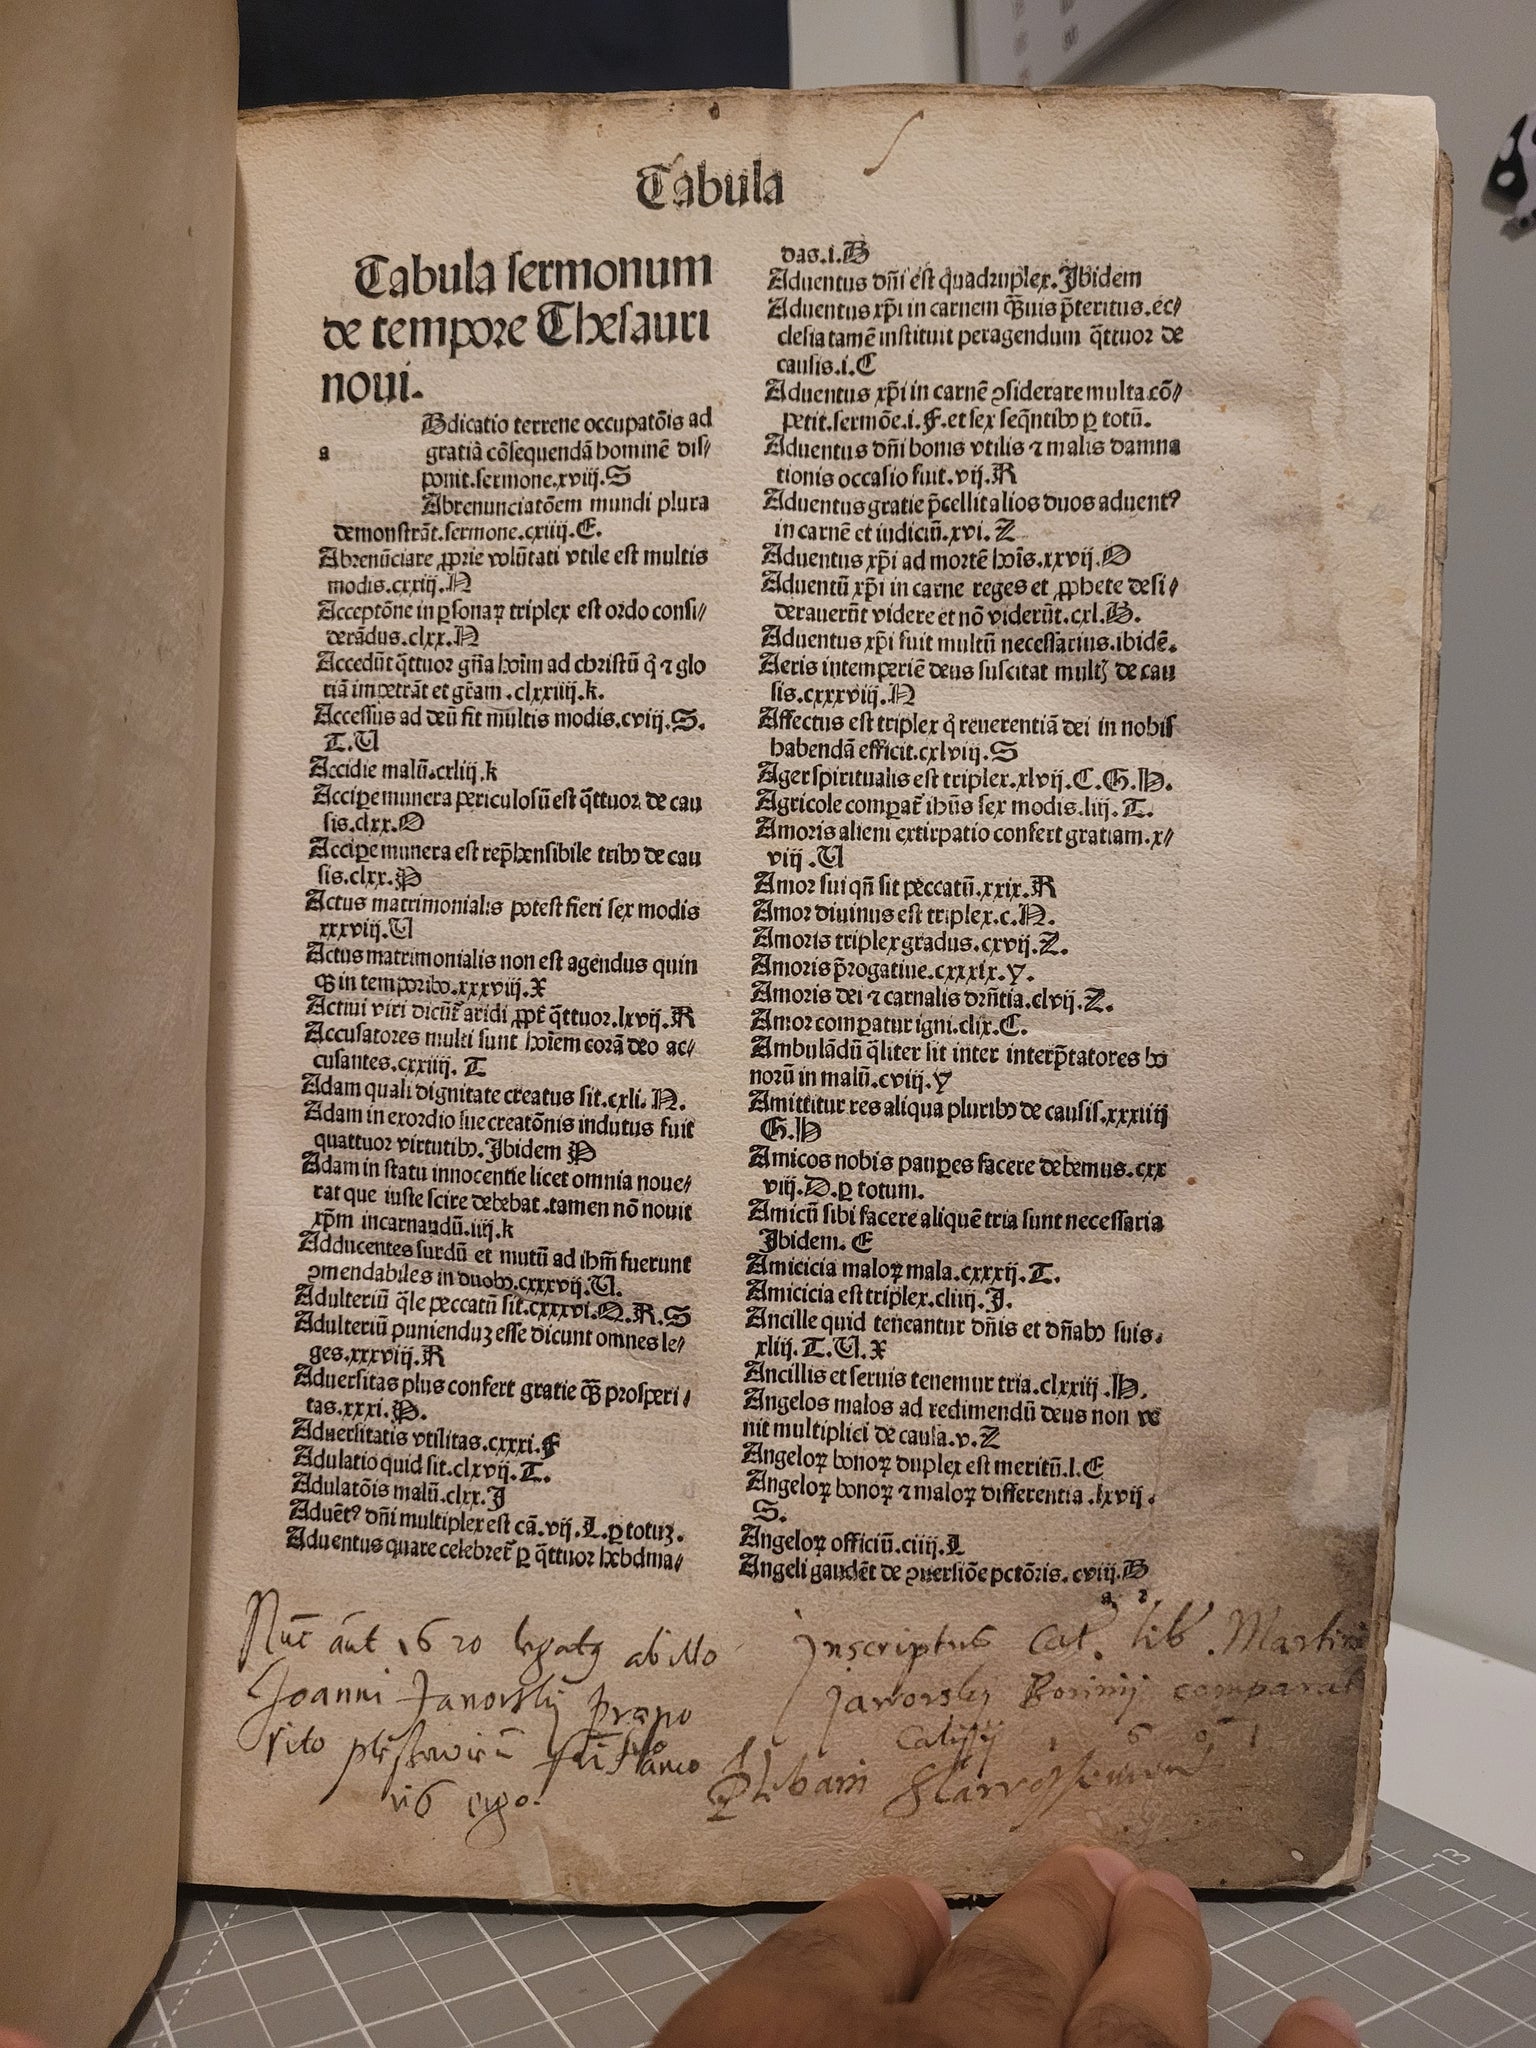 Tabula
Tabula sermonum
de tempore Thesauri
noui.
a
Bdicatio terrene occupatõis ad
gratiã cõsequendã hominẽ dis⸗
ponit.sermone.xviij.S
Abrenunciatõem mundi plura
demonstrãt.sermone.cxiiij.E.
Abrenũciare ꝓprie volũtati vtile est multis
modis.cxxiij.N
Acceptõne in ꝑsonaꝝ triplex est ordo consi⸗
derãdus.clxx.N
Accedũt q̃ttuor gña hoĩm ad christũ q̇ ⁊ glo
riã impetrãt et grãm.clxxiiij.k.
Accessus ad deũ fit multis modis.cviij.S.
T.U
Accidie malũ.cxliij.k
Acciꝑe munera periculosũ est q̃ttuor de cau
sis.clxx.O
Acciꝑe munera est rep̃hensibile tribꝰ de cau
sis.clxx.P
Actus matrimonialis potest fieri sex modis
xxxviij.U
Actus matrimonialis non est agendus quin
qꝫ in temporibꝰ.xxxviij.X
Actiui viri dicũt̃ aridi ꝓpt̃ q̃ttuor.lxvij.R
Accusatores multi sunt hoĩem corã deo ac⸗
cusantes.cxxiiij. T
Adam quali dignitate creatus sit.cxli. N.
Adam in exordio sue creatõnis indutus fuit
quattuor virtutibꝰ. Ibidem P
Adam in statu innocentie licet omnia noue⸗
rat que iuste scire debebat.tamen nõ nouit
xp̃m incarnandũ.iiij.k
Adducentes surdũ et mutũ ad ihm̃ fuerunt
ꝯmendabiles in duobꝰ.cxxxvij.U.
Adulteriũ q̃le peccatũ sit.cxxxvi.Q.R.S
Adulteriũ puniendũ esse dicunt omnes le⸗
ges.xxxviij.R
Aduersitas plus confert gratie q̃ꝫ prosperi⸗
tas.xxxi.P.
Aduersitatis vtilitas.cxxxi.F
Adulatio quid sit.clxvij.T.
Adulatõis malũ.clxx.I
Aduẽtꝰ dñi multiplex est cã.vij.L.ꝑ totuꝫ.
Aduentus quare celebret̃ ꝑ q̃ttuor hebdma⸗
das.i.B
Aduentus dñi est quadruplex.Ibidem
Aduentus xp̃i in carnem q̃ꝫuis p̃teritus.ec⸗
clesia tamẽ instituit peragendum q̃ttuor de
causis.i.C
Aduentus xp̃i in carnẽ ꝯsiderare multa.cõ⸗
petit.sermõe.i.F.et sex seq̃ntibꝰ ꝑ totũ.
Aduentus dñi bonis vtilis ⁊ malis damna
tionis occasio fuit.vij.R
Aduentus gratie p̃cellit alios duos aduentꝰ
in carnẽ et iudiciũ.xvi.Z
Aduentus xp̃i ad mortẽ hoĩs.xxvij.O
Aduentũ xp̃i in carne reges et ꝓphete desi⸗
derauerũt videre et nõ viderũt.cxl.B.
Aduentus xp̃i fuit multũ necessarius.ibidẽ.
Aeris intemperiẽ deus suscitat multꝭ de cau
sis.cxxxviij.N
Affectus est triplex q̇ reuerentiã dei in nobis
habendã efficit.cxlviij.S
Ager spiritualis est triplex.xlvij.C.G.H.
Agricole comꝑat̃ ihũs sex modis.liij.T.
Amoris alieni extirpatio confert gratiam.x⸗
viij.U
Amor sui qñ sit peccatũ.xxix.R
Amor diuinus est triplex.c.N.
Amoris triplex gradus.cxvij.Z.
Amoris p̃rogatiue.cxxxix.Y.
Amoris dei ⁊ carnalis drñtia.clvij.Z.
Amor comꝑatur igni.clix.C.
Ambulãdũ q̃liter sit inter interp̃tatores bo
norũ in malũ.cviij.Y
Amittitur res aliqua pluribꝰ de causis.xxxiiij
G.H
Amicos nobis pauꝑes facere debemus.cxx
viij.D.ꝑ totum.
Amicũ sibi facere aliquẽ tria sunt necessaria
Ibidem. E
Amicicia maloꝝ mala.cxxxij.T.
Amicicia est triplex.cliiij.I.
Ancille quid teneantur dñis et dñabꝰ suis.
xliij.T.U.X
Ancillis et seruis tenemur tria.clxxiij.H.
Angelos malos ad redimendũ deus non ve
nit multiplici de causa.v.Z
Angeloꝝ bonoꝝ duplex est meritũ.l.E
Angeloꝝ bonoꝝ ⁊ maloꝝ differentia.lxvij.
S.
Angeloꝝ officiũ.ciiij.L
Angeli gaudẽt de ꝯuersiõe pctõris.cviij.B
a 2
Nũc aũt 1620 legatꝰ ab illo
Joanni Janovskÿ Præpo
sito
Inscriptus Cat. lib. Martini
Jaworskj comparat
1 6 0 1